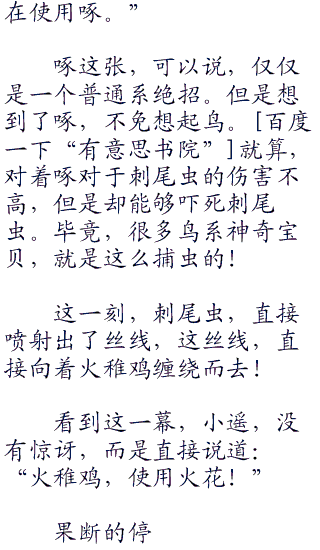 在使用啄。”
啄这张，可以说，仅仅
是一个普通系绝招。但是想
到了啄，不免想起鸟。[百度
一下“有意思书院”]就算，
对着啄对于刺尾虫的伤害不
高，但是却能够吓死刺尾
虫。毕竟，很多鸟系神奇宝
贝，就是这么捕虫的！
这一刻，刺尾虫，直接
喷射出了丝线，这丝线，直
接向着火稚鸡缠绕而去！
看到这一幕，小遥，没
有惊讶，而是直接说道：
“火稚鸡，使用火花！”
果断的停